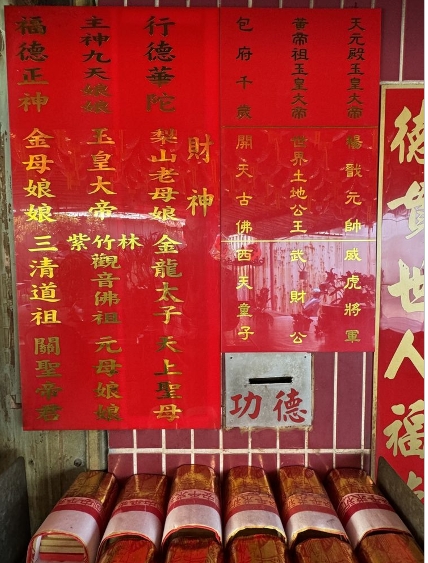 德貫世人福
天元殿玉皇大帝
楊戩元帥
威虎將軍
黃帝祖玉皇大帝
世界土地公王
武財公
包府千歲
開天古佛
西天童子
財神
行德華陀
梨山老母娘
金龍太子
天上聖母
主神九天娘娘
玉皇大帝
紫竹林觀音佛祖
元母娘娘
福德正神
金母娘娘
三清道祖
關聖帝君
功德